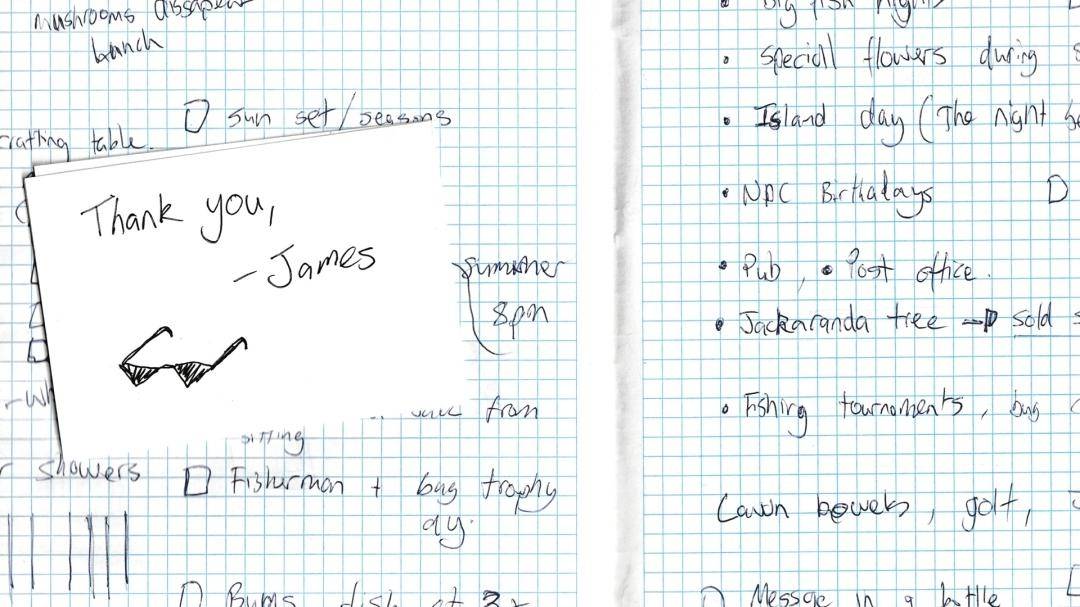 mushrooms dissapear
bunch
sun set/seasons
crafting table.
Thank you,
- James
Summer
8pm
from
sitting
showers
Fisherman + bug trophy
day.
Bums dish at
• Big fish nights
• Speciall flowers during
• Island day (The night
• NPC Birthadays
• Pub, • Post office.
• Jackaranda tree → sold
• Fishing tournaments, bug
Lawn bowels, golf,
Message in a bottle